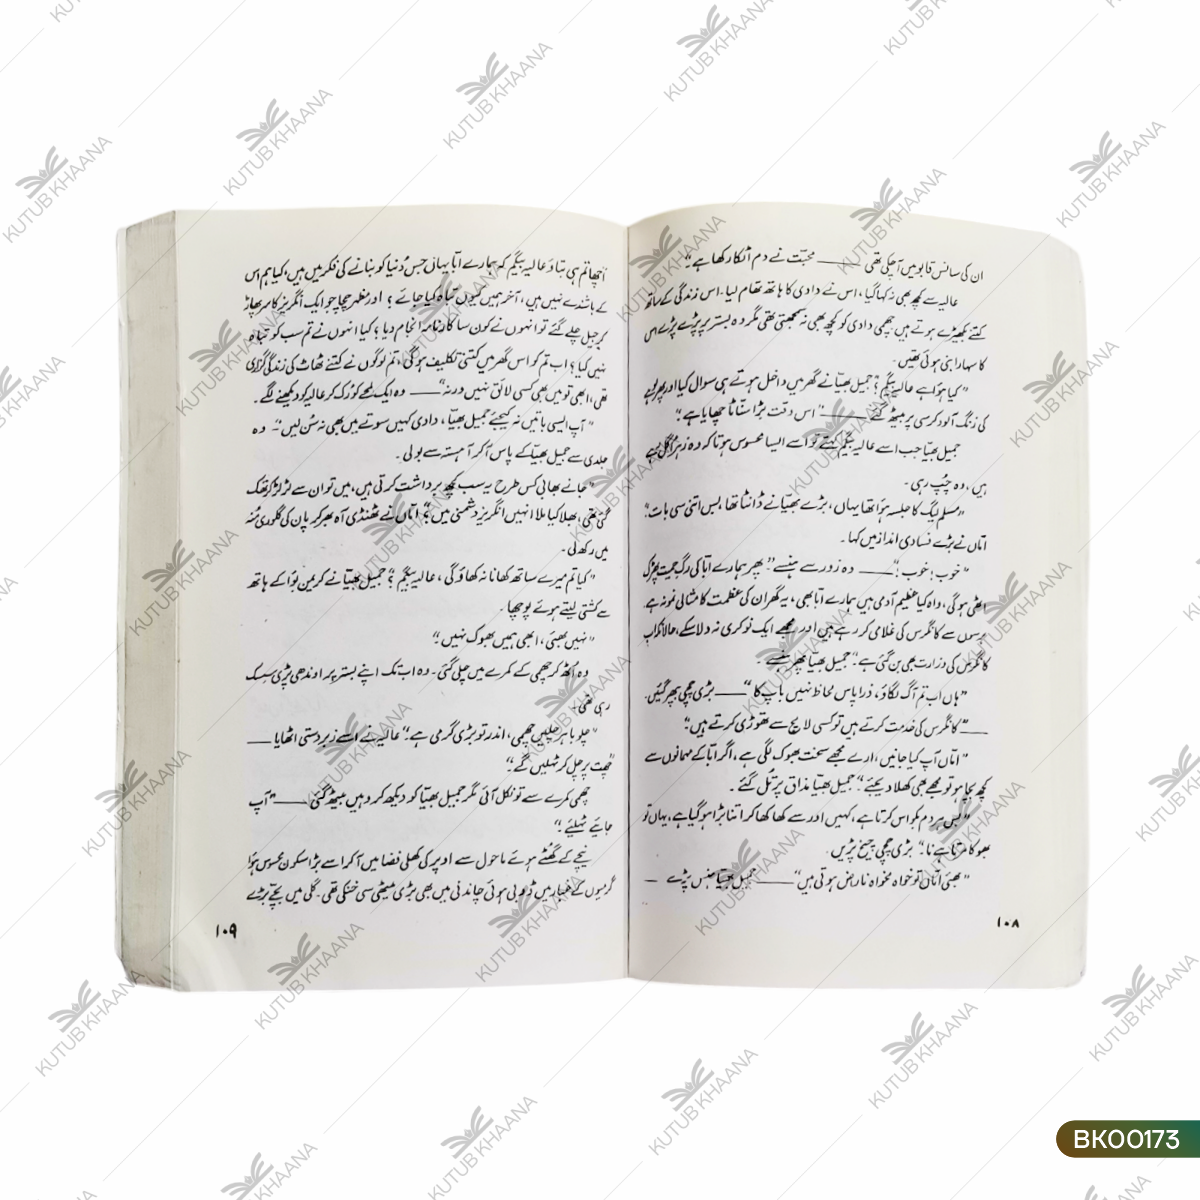 ان کی سانس قابو میں آ چکی تھی ——— محبّت نے دم اٹکا رکھا ہے"۔
عالیہ سے کچھ بھی نہ کہا گیا، اس نے دادی کا ہاتھ تھام لیا۔ اس زندگی کے ساتھ
کتنے بکھیڑے ہوتے ہیں چھمی دادی کو کچھ بھی نہ سمجھتی تھی مگر وہ بستر پر پڑے پڑے اس
کا سہارا بنی ہوئی تھیں۔
"کیا ہوا ہے عالیہ بیگم؟" جمیل بھیّا نے گھر میں داخل ہوتے ہی سوال کیا اور پھر لوہے
کی زنگ آلود کرسی پر بیٹھ گئے ——— "اس وقت بڑا سنّاٹا چھایا ہے"۔
جمیل بھیّا جب اسے عالیہ بیگم کہتے تو اسے ایسا محسوس ہوتا کہ وہ زہر اگل رہے
ہیں، وہ چُپ رہی۔
"مسلم لیگ کا جلسہ ہوا تھا یہاں، بڑے بھیّا نے ڈانٹا تھا، بس اتنی سی بات"۔
امّاں نے بڑے فسادی انداز میں کہا۔
"خوب! خوب!" ——— وہ زور سے ہنسے "پھر ہمارے ابّا کی رگِ حمیت پھڑک
اٹھی ہوگی، واہ کیا عظیم آدمی ہیں ہمارے ابّا بھی، یہ گھر ان کی عظمت کا مثالی نمونہ ہے
برسوں سے کانگرس کی غلامی کر رہے ہیں اور مجھے ایک نوکری نہ دلا سکے، حالانکہ اب
کانگرس کی وزارت بھی بن گئی ہے"۔ جمیل بھیّا پھر ہنسے۔
"ہاں اب تم آگ لگاؤ، ذرا پاس لحاظ نہیں باپ کا" ——— بڑی چچی بپھر گئیں۔
——— "کانگرس کی خدمت کرتے ہیں تو کسی لالچ سے تھوڑی کرتے ہیں"۔
"امّاں آپ کیا جانیں، ارے مجھے سخت بھوک لگی ہے، اگر ابّا کے مہمانوں سے
کچھ بچا ہو تو مجھے بھی کھلا دیجئے"۔ جمیل بھیّا مذاق پر تُل گئے۔
"بس ہر دم بکواس کرتا ہے، کہیں اور سے کھا کھا کر اتنا بڑا ہو گیا ہے، یہاں تو
بھوکا مرتا ہے نا"۔ بڑی چچی چیخ پڑیں۔
"بھئی امّاں تو خواہ مخواہ ناراض ہوتی ہیں" ——— جمیل بھیّا ہنس پڑے ——
۱۰۸
"اچھا تم ہی بتاؤ عالیہ بیگم کہ ہمارے ابّا یہاں جس دُنیا کو بنانے کی فکر میں ہیں، کیا ہم اس
کے باشندے نہیں ہیں، آخر ہمیں کیوں تباہ کیا جائے؟ اور مظہر چچا جو ایک انگریز کا سر پھاڑ
کر جیل چلے گئے تو انہوں نے کون سا کارنامہ انجام دیا؟ کیا انہوں نے تم سب کو تباہ
نہیں کیا؟ اب تم کو اس گھر میں کتنی تکلیف ہوگی، تم لوگوں نے کتنے ٹھاٹ کی زندگی گزاری
تھی، ابھی تو میں بھی کسی لائق نہیں ورنہ" ——— وہ ایک لمحے کو رُک کر عالیہ کو دیکھنے لگے۔
"آپ ایسی باتیں نہ کیجئے جمیل بھیّا، دادی کہیں سوتے میں بھی نہ سُن لیں"۔ وہ
جلدی سے جمیل بھیّا کے پاس آکر آہستہ سے بولی۔
"جانے بھابی کس طرح یہ سب کچھ برداشت کرتی ہیں، میں تو ان سے لڑ لڑ کر تھک
گئی تھی، بھلا کیا ملا انہیں انگریز دشمنی میں"؟ امّاں نے ٹھنڈی آہ بھر کر پان کی گلوری مُنہ
میں رکھ لی۔
"کیا تم میرے ساتھ کھانا نہ کھاؤ گی، عالیہ بیگم؟" جمیل بھیّا نے کریمن بُوا کے ہاتھ
سے کشتی لیتے ہوئے پوچھا۔
"نہیں بھئی، ابھی ہمیں بھوک نہیں"۔
وہ اُٹھ کر چھمی کے کمرے میں چلی گئی۔ وہ اب تک اپنے بستر پر اوندھی پڑی سسک
رہی تھی۔
"چلو باہر چلیں چھمی، اندر تو بڑی گرمی ہے"۔ عالیہ نے اسے زبردستی اٹھایا ——
"چھت پر چل کر ٹہلیں گے"۔
چھمی کمرے سے تو نکل آئی مگر جمیل بھیّا کو دیکھ کر وہیں بیٹھ گئی ——— "آپ
جائیے ٹہلیے"۔
نیچے کے گھُٹے ہوئے ماحول سے اوپر کی کھلی فضا میں آکر اسے بڑا سکون محسوس ہوا
گرمیوں کے غبار میں ڈوبی ہوئی چاندنی میں بھی بڑی میٹھی سی خنکی تھی۔ گلی میں بچّے بڑے
۱۰۹
BK00173
KUTUB KHAANA